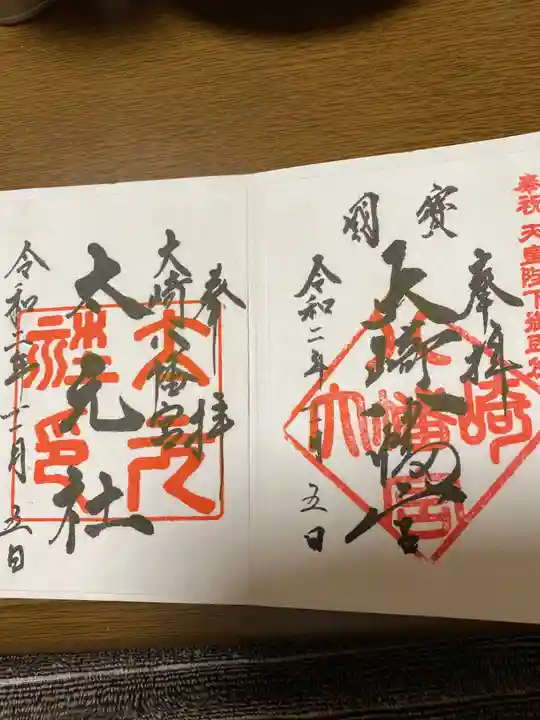 奉祝 天皇陛下御即位
奉拝
國寶
大崎八幡宮
令和二年十一月五日
大崎八幡宮
奉拝
大崎八幡宮
太元社
令和二年十一月五日
太元社印